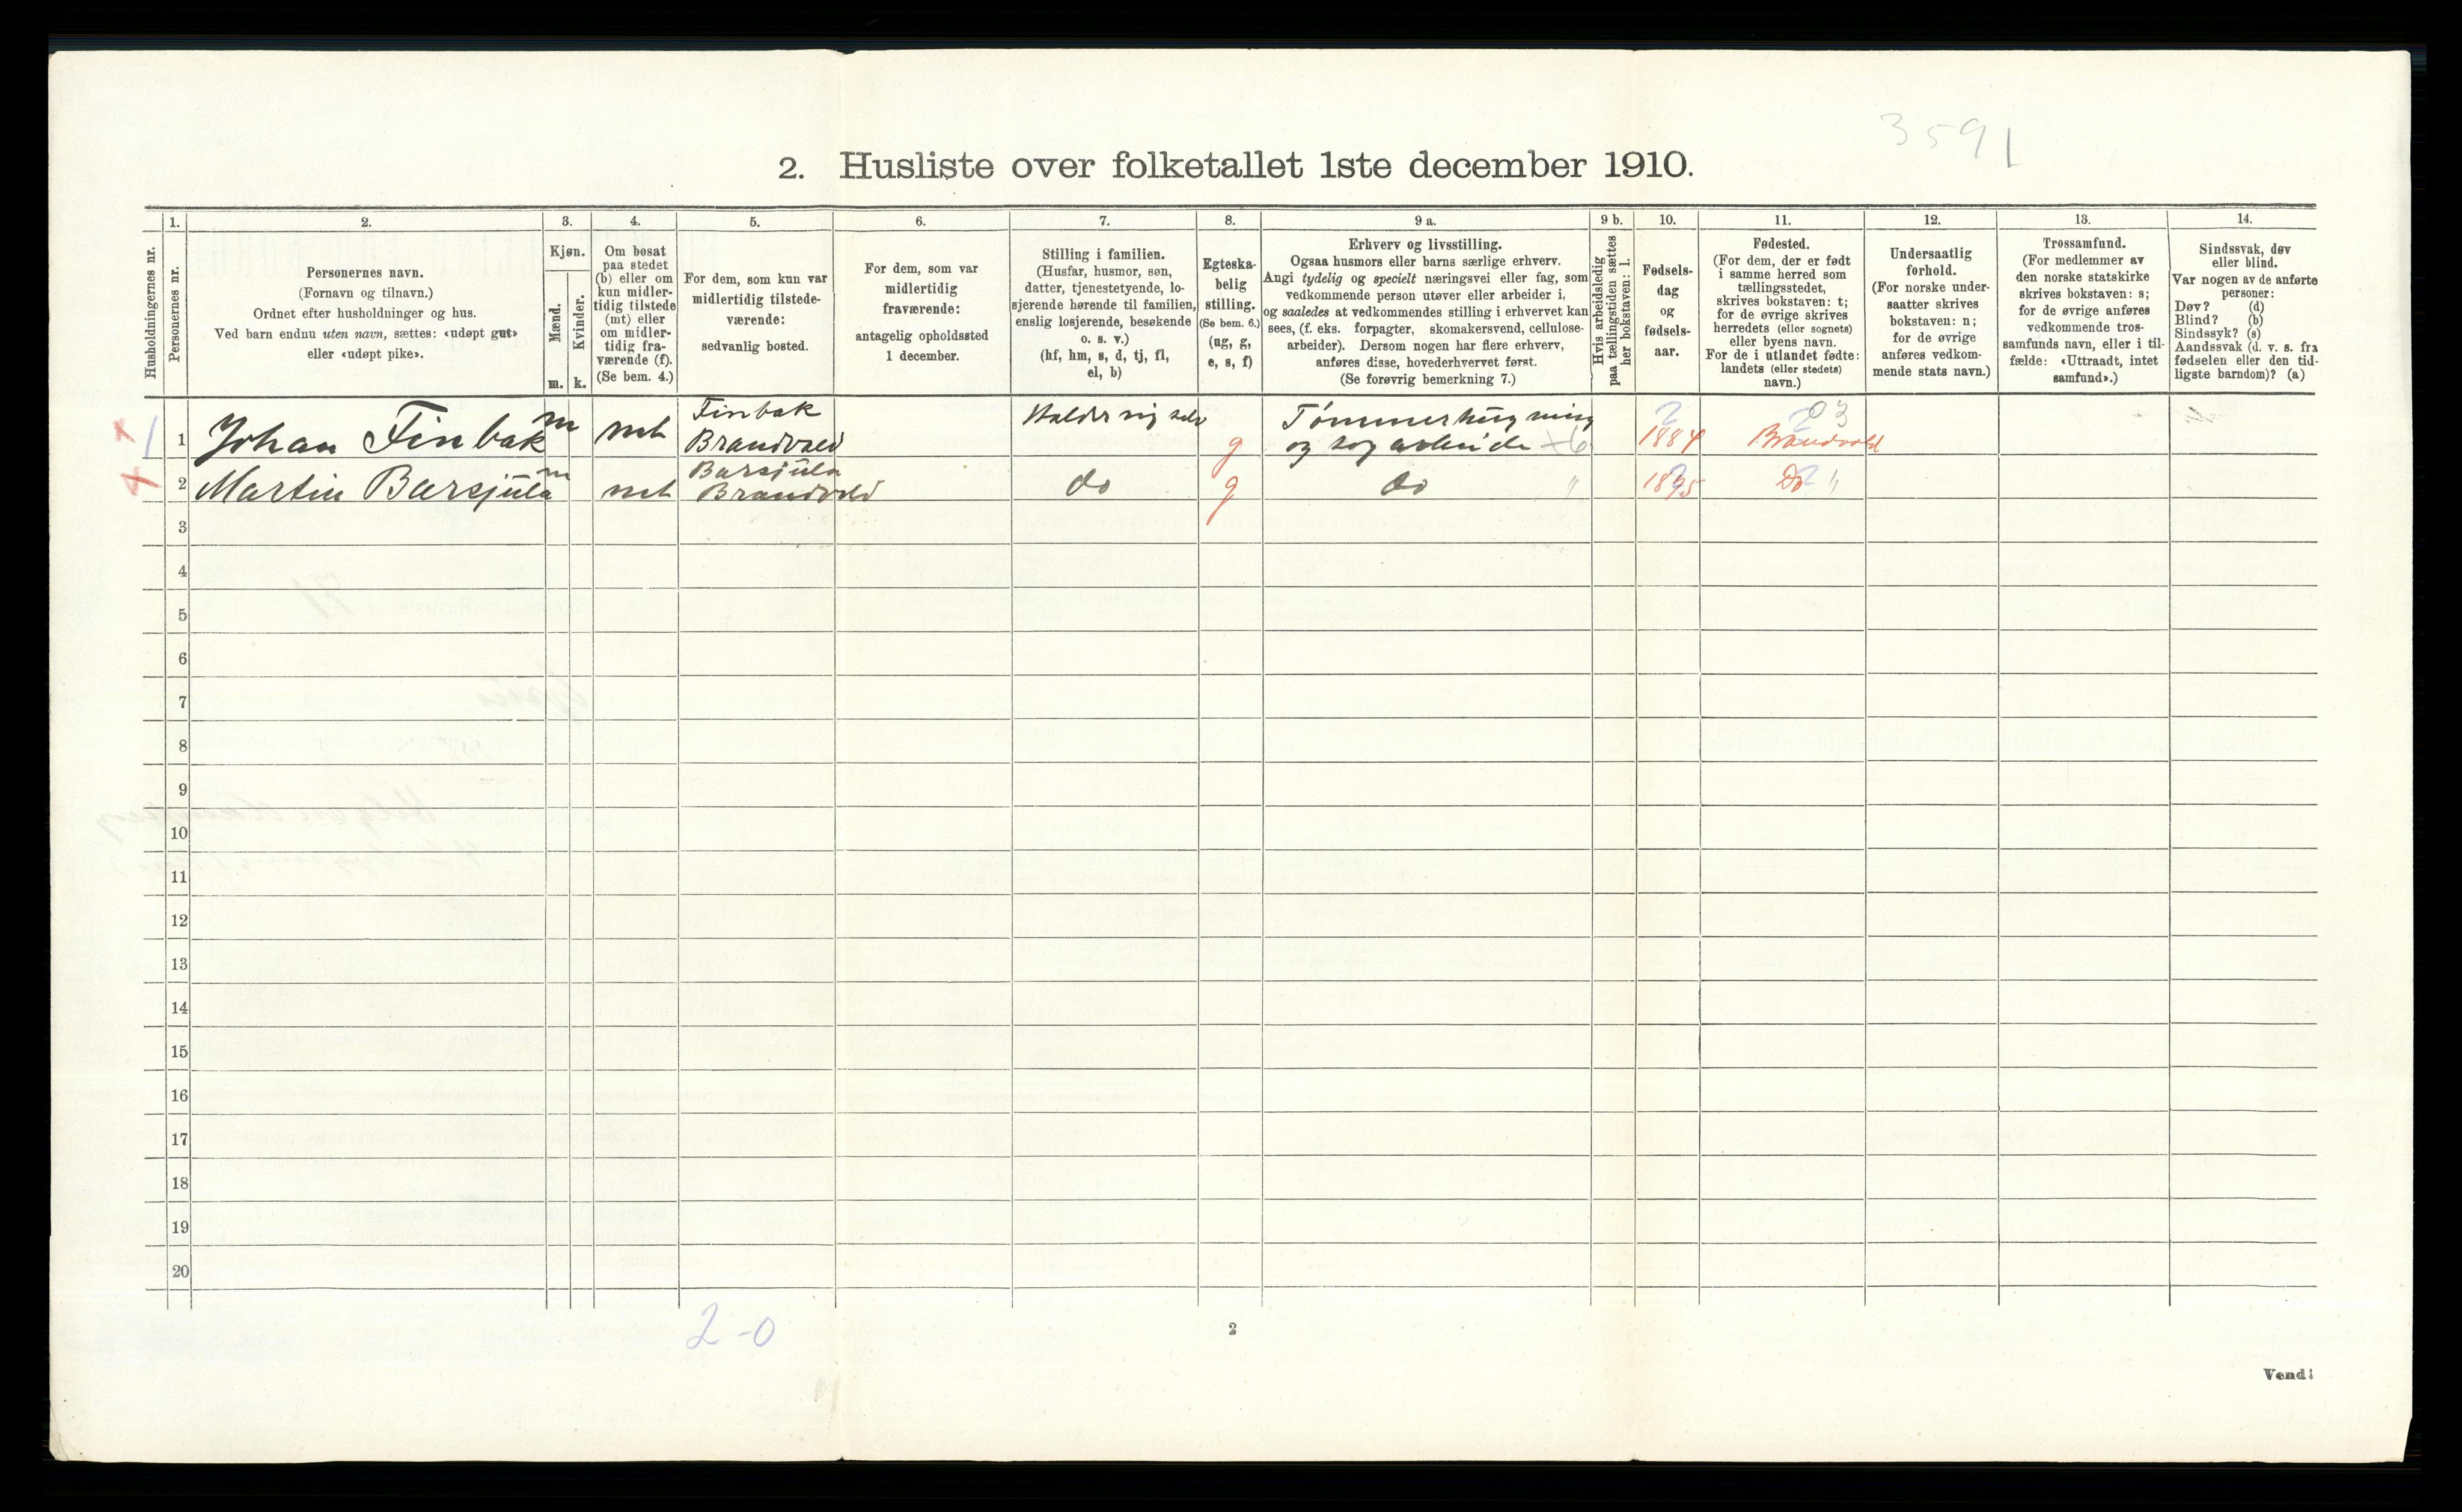 3591
2. Husliste over folketallet 1ste december 1910.
Husholdningernes nr.
1.
Personernes nr.
2.
Personernes navn.
(Fornavn og tilnavn.)
Ordnet efter husholdninger og hus.
Ved barn endnu uten navn, sættes: «udøpt gut»
eller «udøpt pike».
3.
Kjøn.
Mænd.
Kvinder.
m. k.
4.
Om bosat
paa stedet
(b) eller om
kun midler-
tidig tilstede
(mt) eller
om midler-
tidig fra-
værende (f).
(Se bem. 4.)
5.
For dem, som kun var
midlertidig tilstede-
værende:
sedvanlig bosted.
6.
For dem, som var
midlertidig
fraværende:
antagelig opholdssted
1 december.
7.
Stilling i familien.
(Husfar, husmor, søn,
datter, tjenestetyende, lo-
sjerende hørende til familien,
enslig losjerende, besøkende
o. s. v.)
(hf, hm, s, d, tj, fl,
el, b)
8.
Egteska-
belig
stilling.
(Se bem. 6.)
(ug, g,
e, s, f)
9 a.
Erhverv og livsstilling.
Ogsaa husmors eller barns særlige erhverv.
Angi tydelig og specielt næringsvei eller fag, som
vedkommende person utøver eller arbeider i,
og saaledes at vedkommendes stilling i erhvervet kan
sees, (f. eks. forpagter, skomakersvend, cellulose-
arbeider). Dersom nogen har flere erhverv,
anføres disse, hovederhvervet først.
(Se forøvrig bemerkning 7.)
9 b.
Hvis arbeidsledig
paa tællingstiden sættes
her bokstaven: l.
10.
Fødsels-
dag
og
fødsels-
aar.
11.
Fødested.
(For dem, der er født
i samme herred som
tællingsstedet,
skrives bokstaven: t;
for de øvrige skrives
herredets (eller sognets)
eller byens navn.
For de i utlandet fødte:
landets (eller stedets)
navn.)
12.
Undersaatlig
forhold.
(For norske under-
saatter skrives
bokstaven: n;
for de øvrige
anføres vedkom-
mende stats navn.)
13.
Trossamfund.
(For medlemmer av
den norske statskirke
skrives bokstaven: s;
for de øvrige anføres
vedkommende tros-
samfunds navn, eller i til-
fælde: «Uttraadt, intet
samfund».)
14.
Sindssvak, døv
eller blind.
Var nogen av de anførte
personer:
Døv? (d)
Blind? (b)
Sindssyk? (s)
Aandssvak (d. v. s. fra
fødselen eller den tid-
ligste barndom)? (a)
Finbak Holder sig selv Tømmerhugning 2 2 03
x 1 1 Johan Finbak m mt Brandvold g og sagarbeide x6 1884 Brandvold
Barsjüla
x 2 Martin Barsjüla m mt Brandvold do g do " 1895 Do 2 "
3
4
5
6
7
8
9
10
11
12
13
14
15
16
17
18
19
20
2-0
2
Vend!